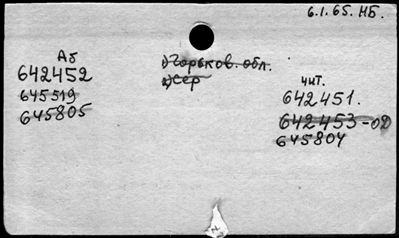 6.1.65. НБ.
Аб
642452
645519
645805
1) Горьков. обл.
2) сер
чит.
642451.
642453-од
645804